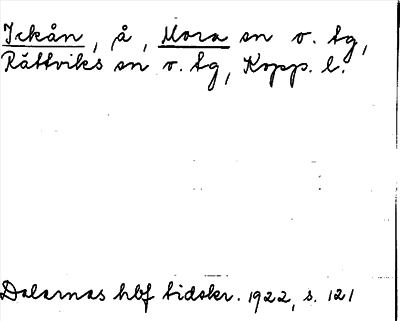 Ickån, å, Mora sn o. tg,
Rättviks sn o. tg, Kopp. l.
Dalarnas hbf tidskr. 1922, s. 121